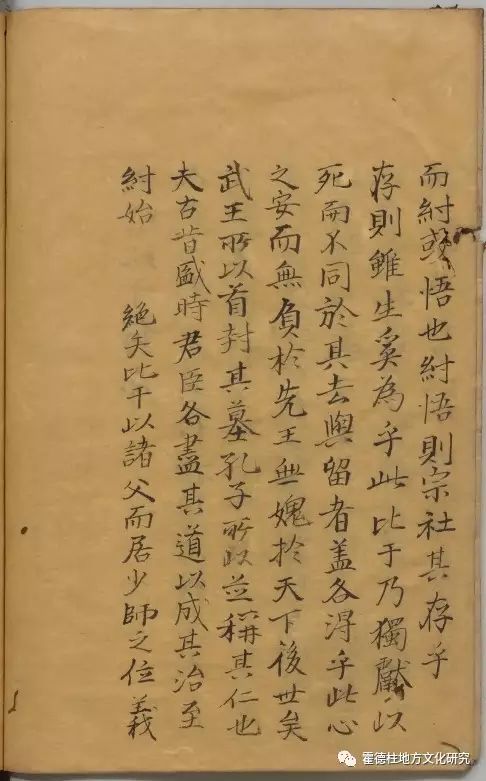 而紂或悟也紂悟則宗社其存乎
存則雖生奚為乎此比于乃獨獻以
死而不同於其去與留者盖各淂乎此心
之安而無負於先王無媿扵天下後世矣
武王所以首封其墓孔子所以並稱其仁也
夫古昔盛時君臣各盡其道以成其治至
紂始 絕矣比干以諸父而居少師之位義
霍德柱地方文化研究